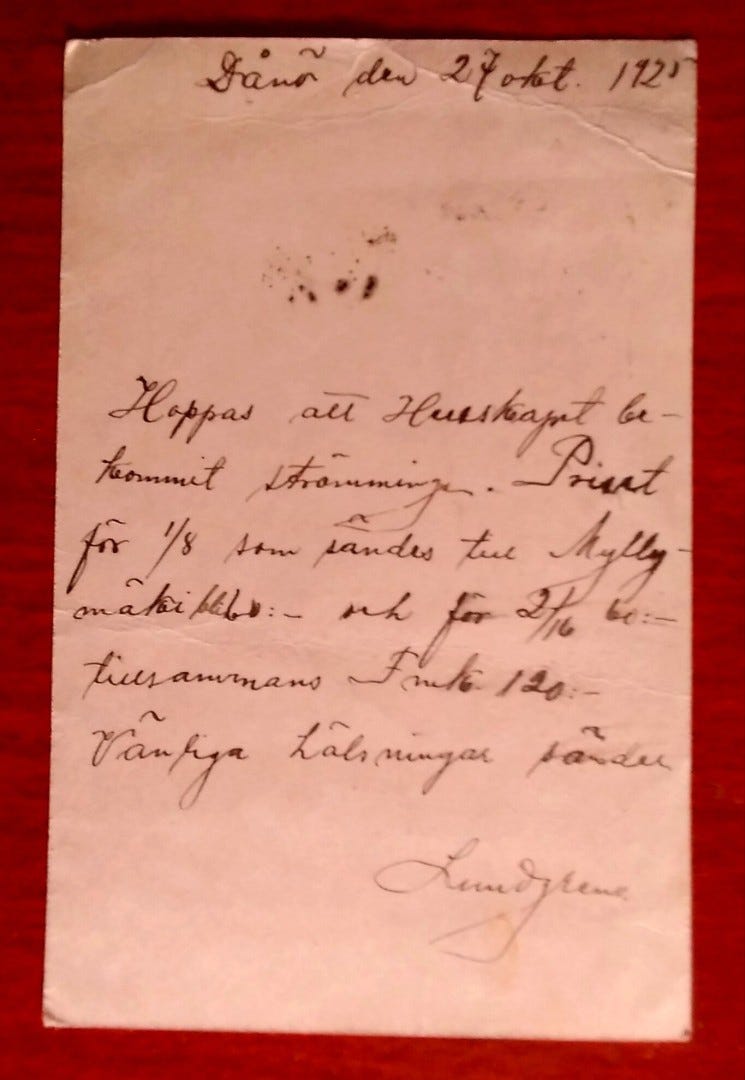 Dånö den 27 okt. 1925
Hoppas att Herrskapet be-
kommit strömming. Priset
för 1/8 som sändes till Mylly-
mäki 60:- och för 2/16 60:-
tillsammans Fmk 120:-
Vänliga hälsningar sänder
Lundgrens